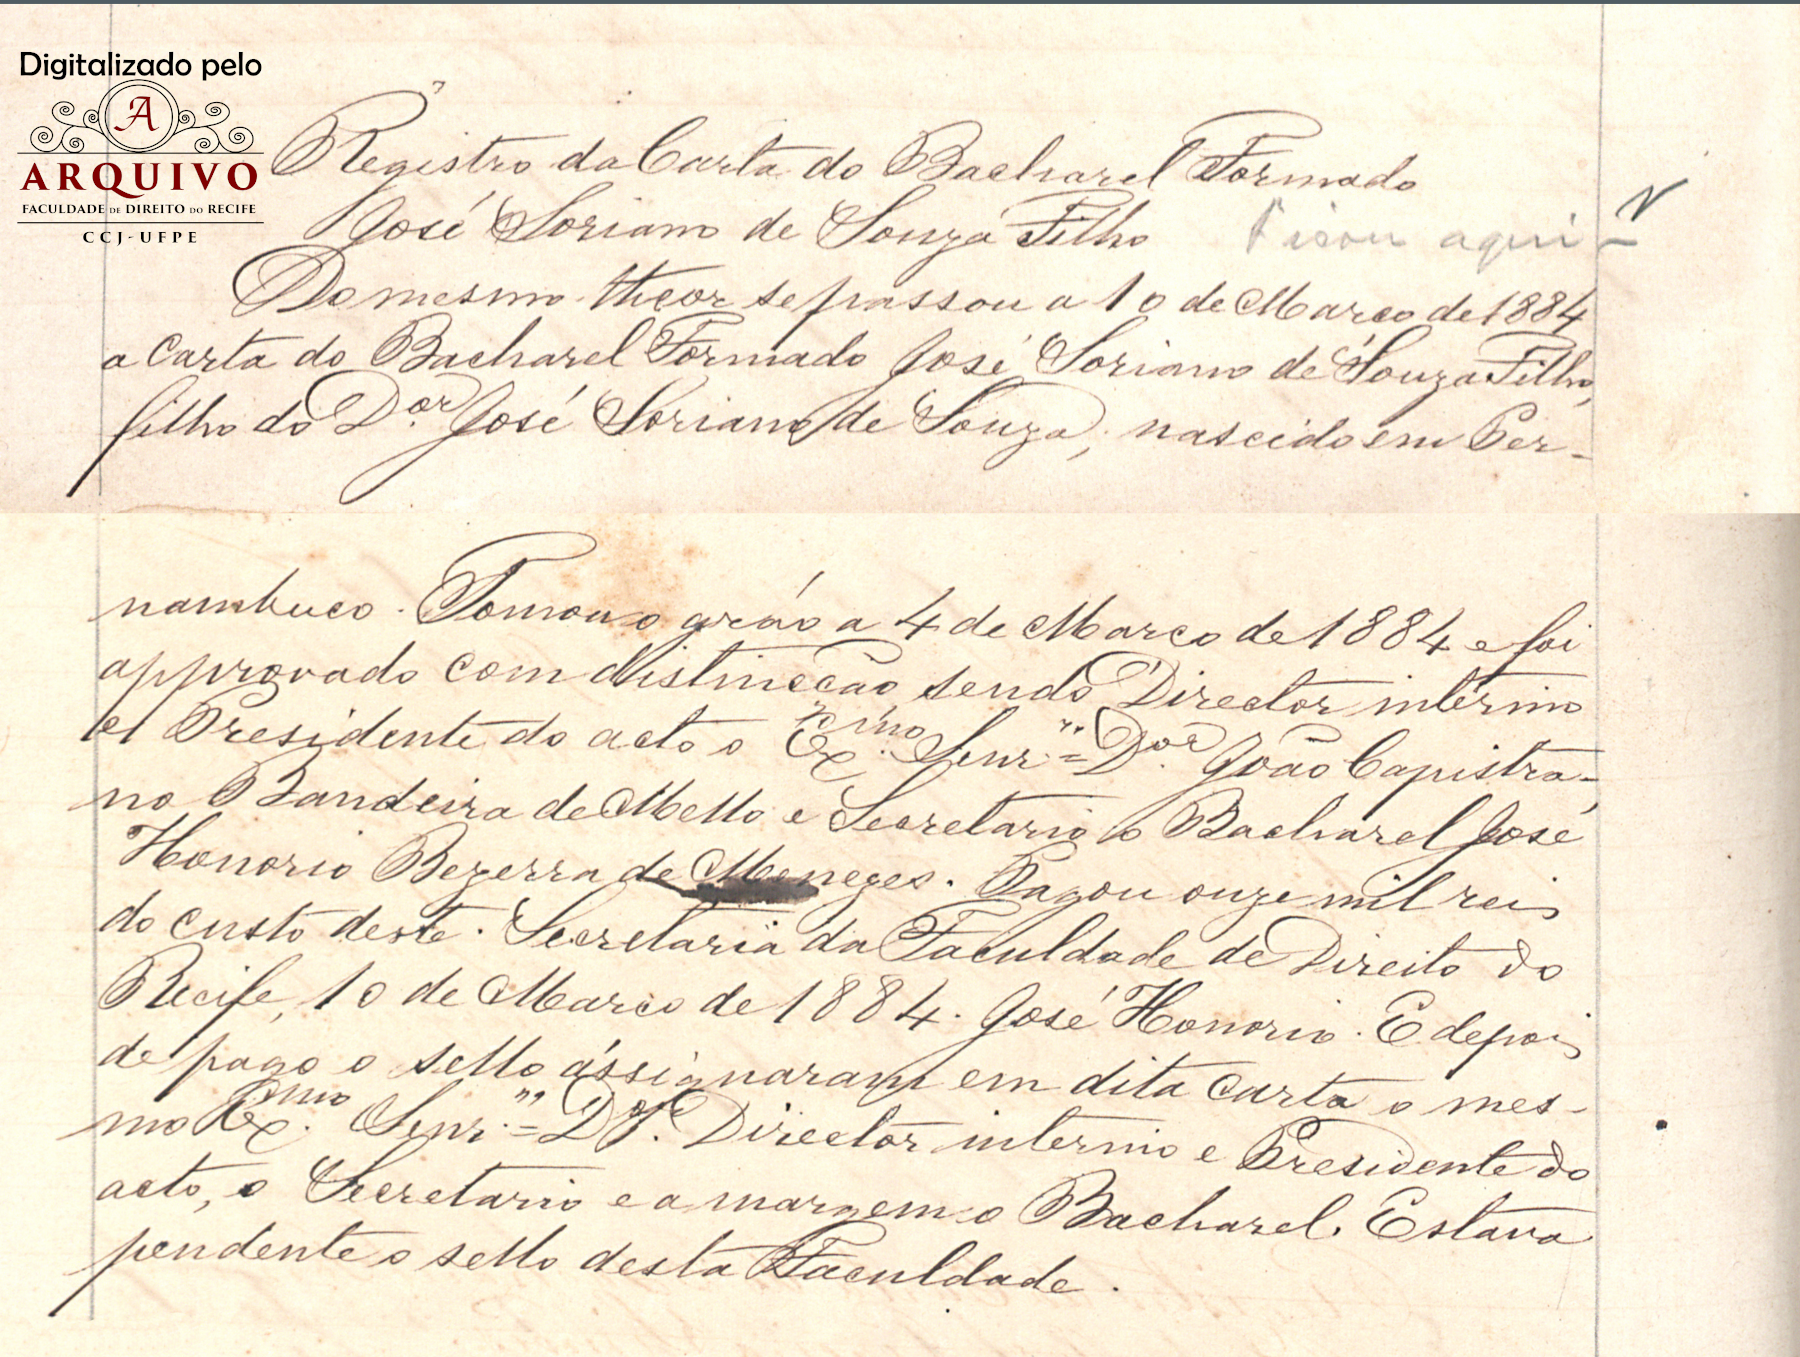 Digitalizado pelo
A
ARQUIVO
FACULDADE DE DIREITO DO RECIFE
CCJ-UFPE
Registro da Carta do Bacharel Formado
José Soriano de Souza Filho
aqui
Do mesmo theor se passou a 10 de Março de 1884
a carta do Bacharel Formado José Soriano de Souza Filho,
filho do Dor. José Soriano de Souza, nascido em Per-
nambuco. Tomou o gráo a 4 de Março de 1884 e foi
approvado com distincção sendo Director interino
e Presidente do acto o Exmo. Senr. Dor. João Capistra-
no Bandeira de Mello e Secretario o Bacharel José
Honorio Bezerra de Menezes. Pagou onze mil reis
do custo deste. Secretaria da Faculdade de Direito do
Recife, 10 de Março de 1884. José Honorio. E depois
de pago o sello assignaram em dita carta o mes-
mo Exmo. Senr. Dor. Director interino e Presidente do
acto, o Secretario e a margem o Bacharel. Estava
pendente o sello desta Faculdade.